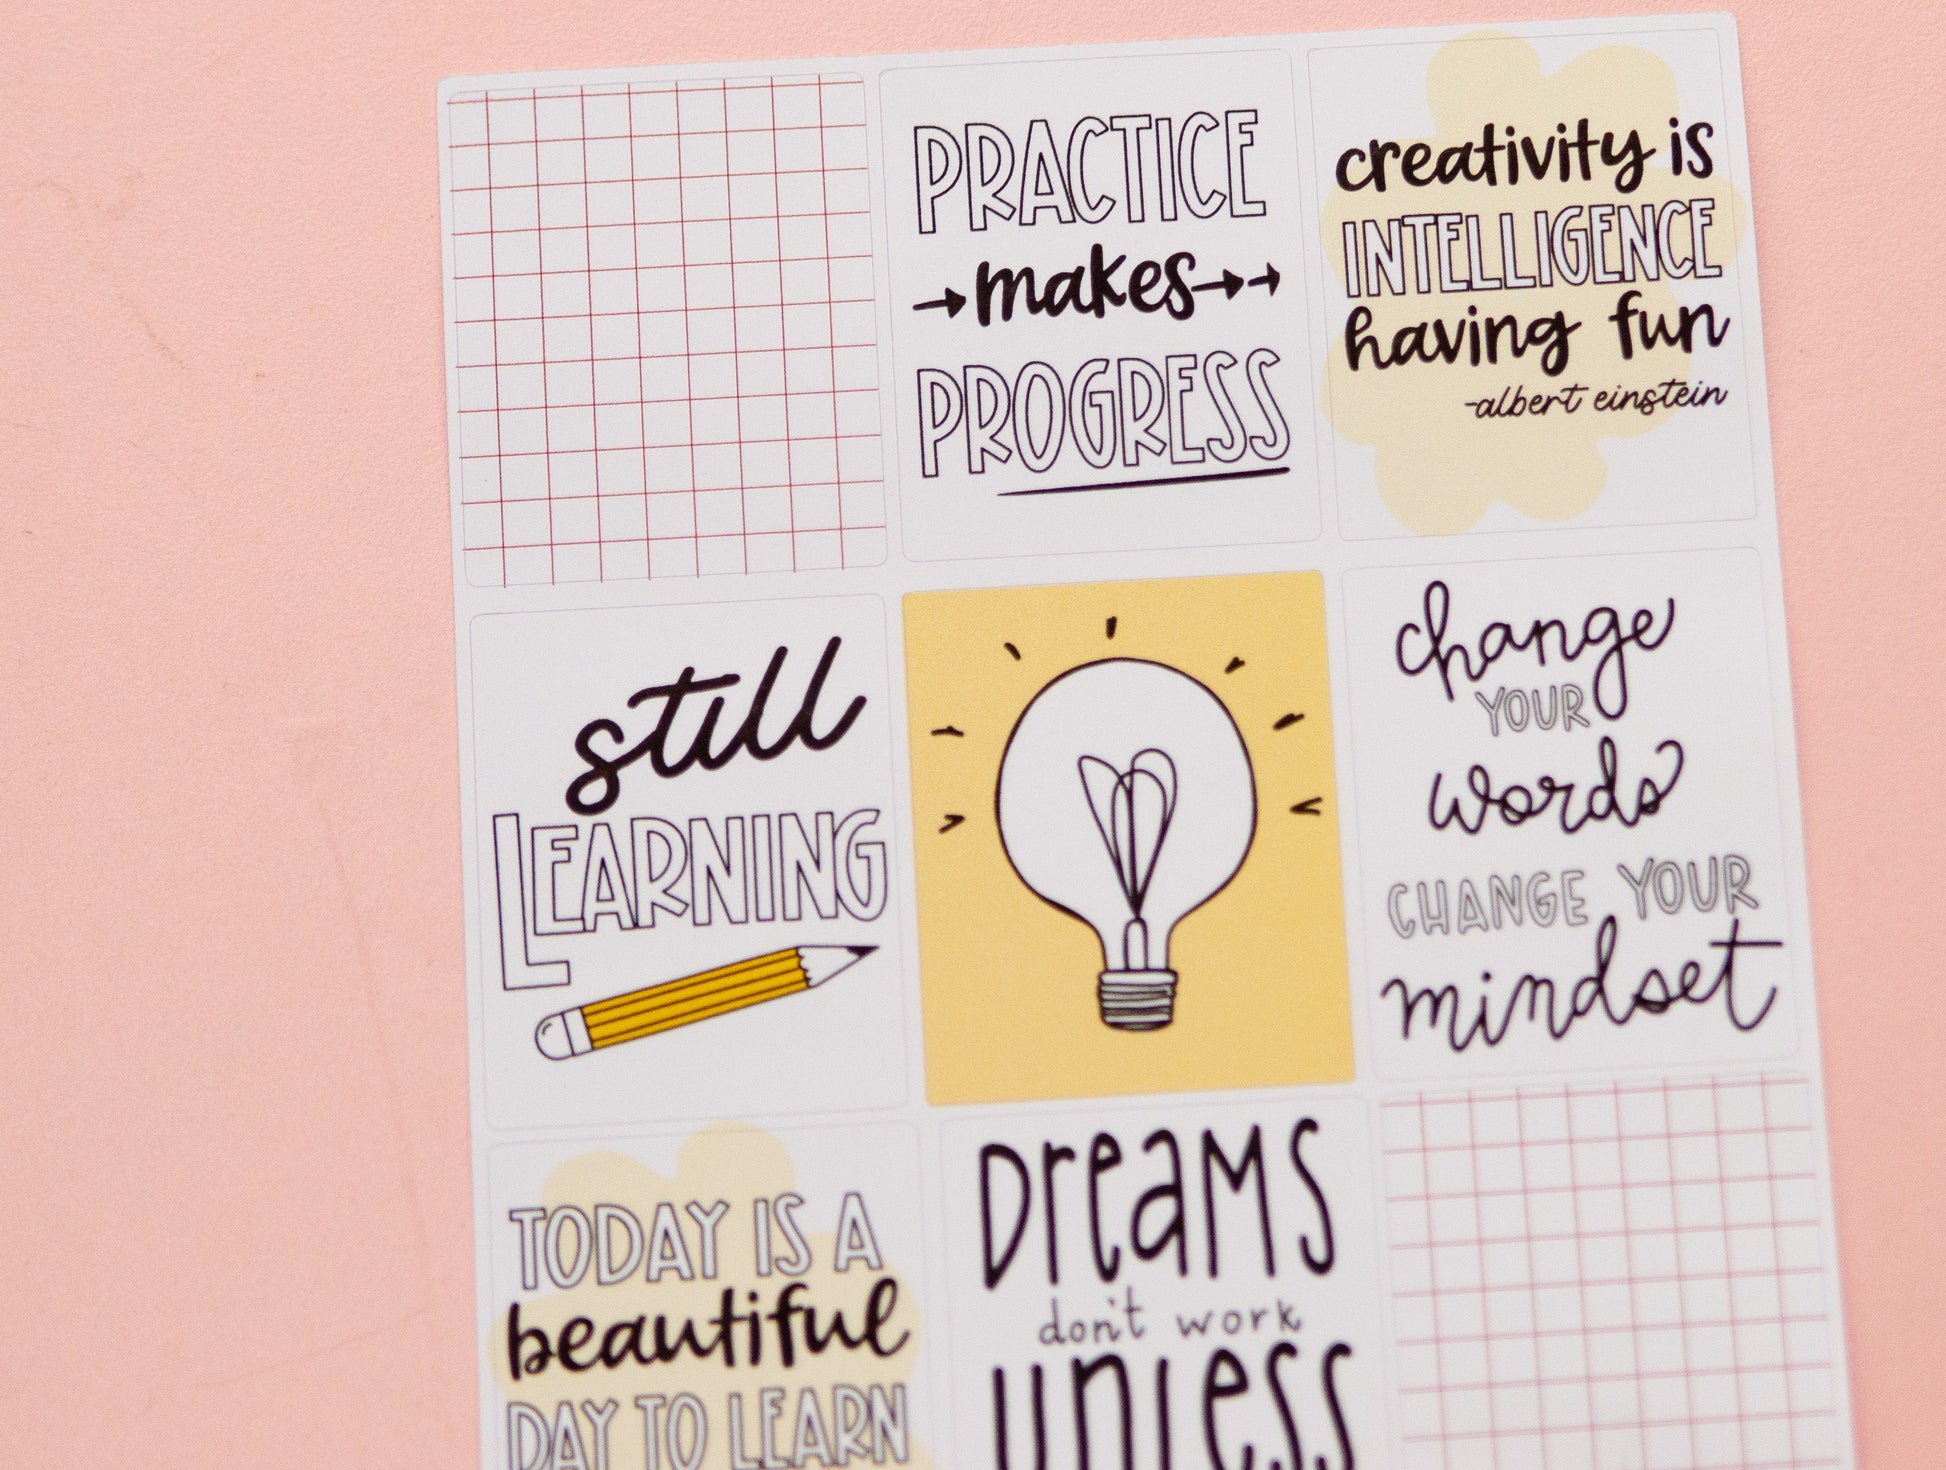 PRACTICE
makes
PROGRESS
creativity is
INTELLIGENCE
having fun
-albert einstein
still
LEARNING
change
YOUR
words
CHANGE YOUR
mindset
TODAY IS A
beautiful
DAY TO LEARN
DREAMS
don't work
UNLESS